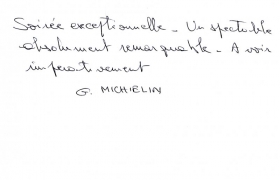 Soirée exceptionnelle. Un spectacle
absolument remarquable. A voir
impérativement
G. MICHIELIN